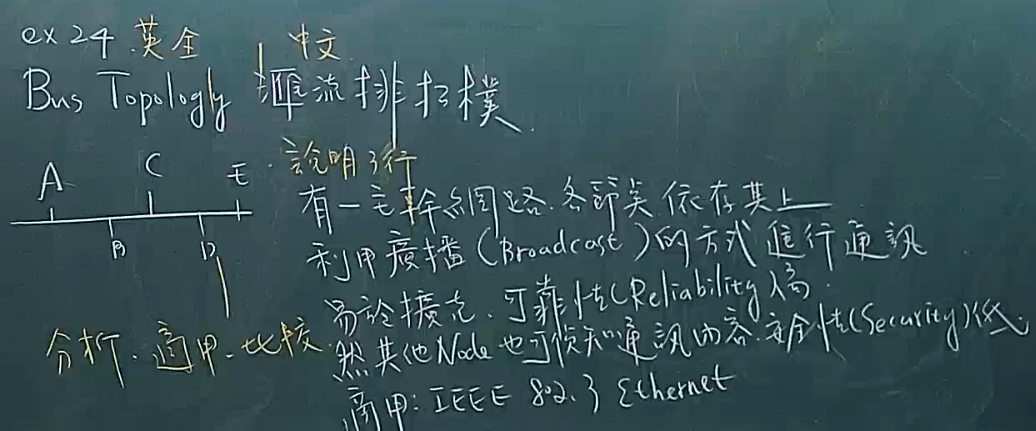 ex 24 英全 中文
Bus Topology 匯流排拓樸
A C E
B D
說明3行
有一主幹網路.各節點.依存其上
利用廣播(Broadcast)的方式進行通訊
易於擴充.可靠性(Reliability)高.
然其他Node也可偵知通訊內容.安全性(Security)低.
適用:IEEE 802.3 Ethernet
分析.適用.比較.